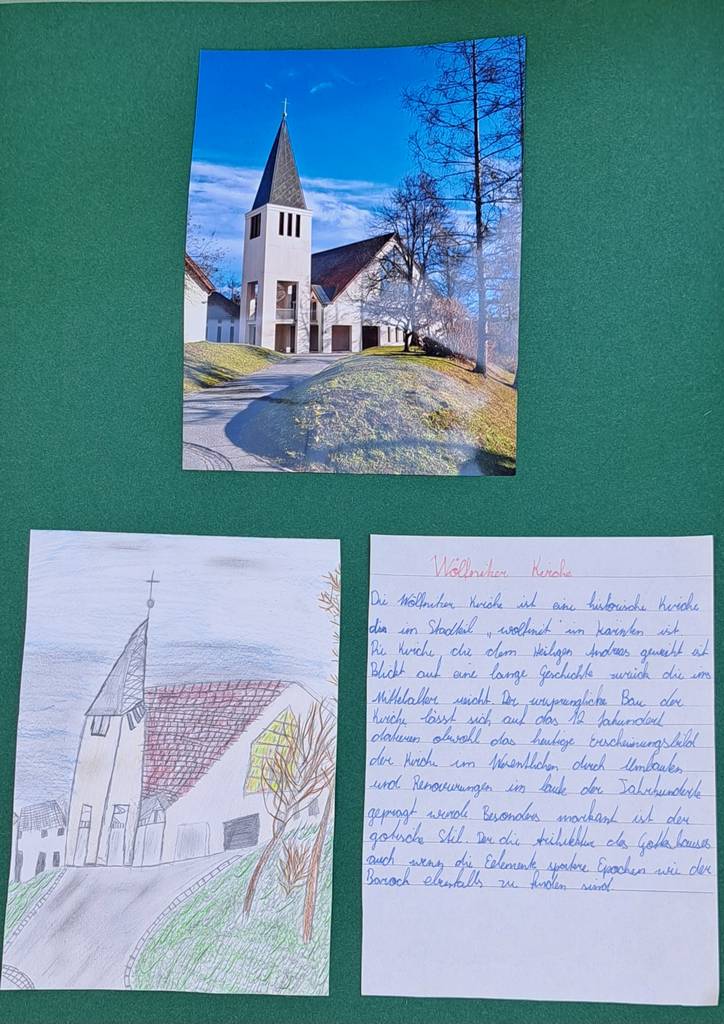 Wölfniker Kirche
Die Wölfniker Kirche ist eine historische Kirche
die im Stadtteil „wolfnit" in Kärnten ist
Die Kirche die dem Heiligen Andreas geweiht ist
Blickt auf eine lange Geschichte zurück die ins
Mittelalter reicht Der ursprüngliche Bau der
Kirche lässt sich auf das 12 Jahundert
datieren obwohl das heutige Erscheinungsbild
der Kirche im Wesentlichen durch Umbauten
und Renovierungen im laufe der Jahrhunderte
geprägt wurde Besonders markant ist der
gotische Stil. Der die Architektur des Gotteshauses
auch wenn die Eelemente spätere Epochen wie der
Barock ebenfalls zu finden sind